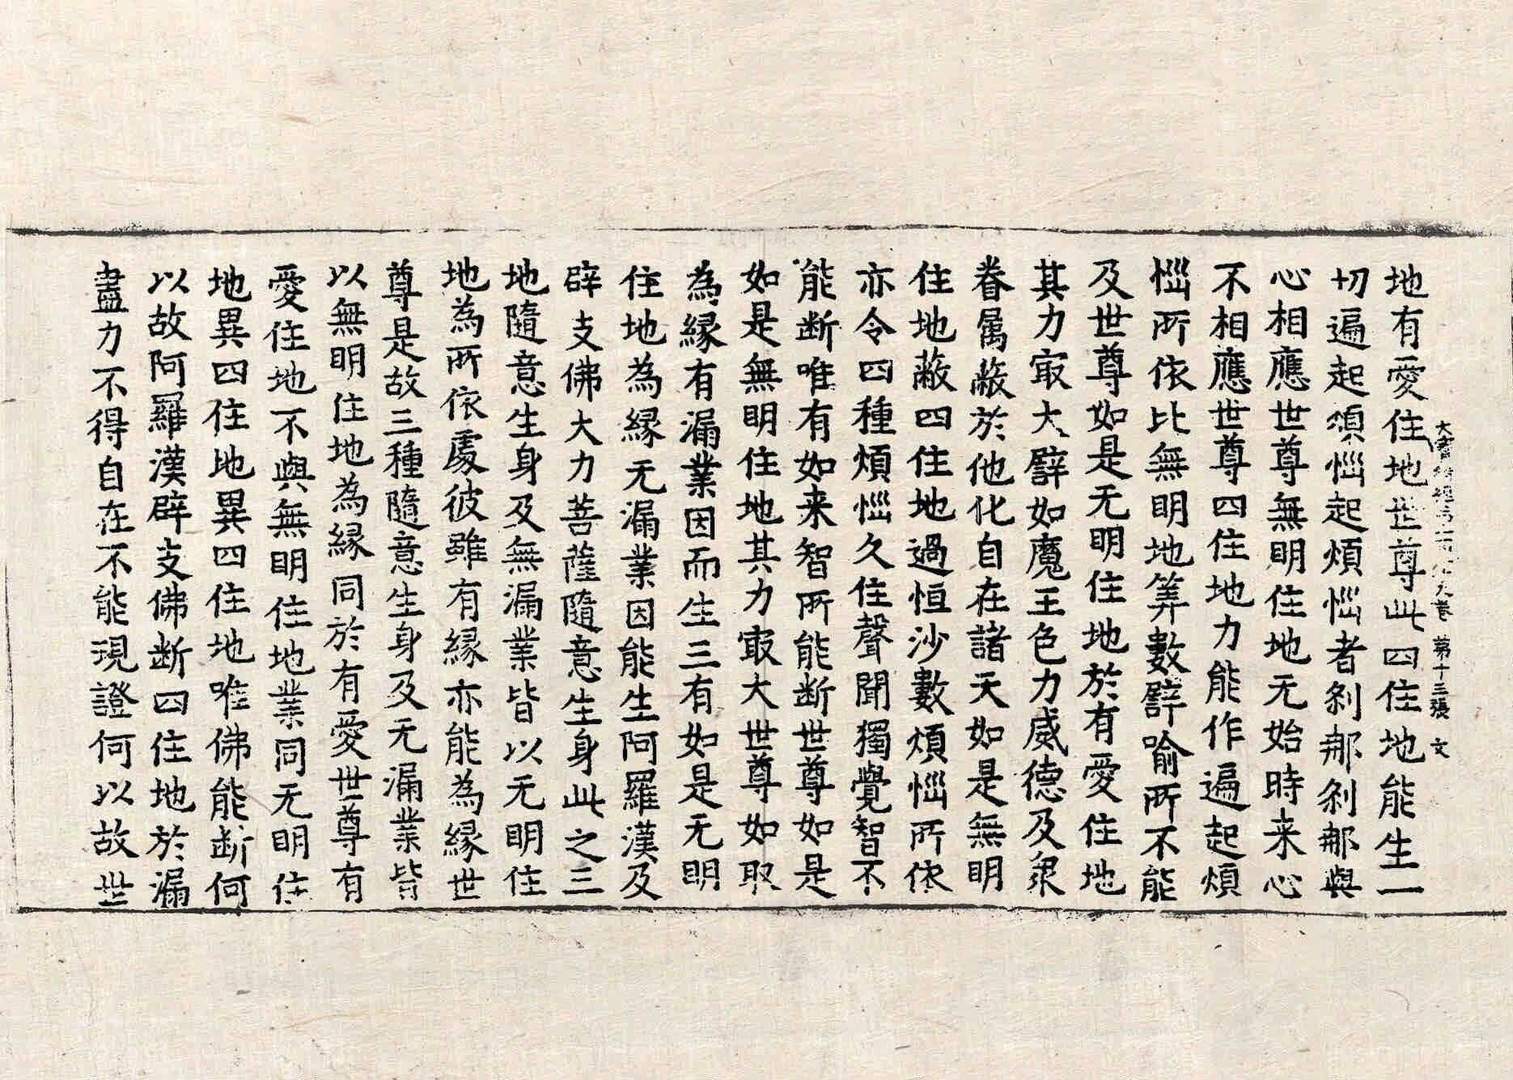 大寶積經第一百一十九卷 第十三張 文
地有愛住地世尊此四住地能生一
切遍起煩惱起煩惱者剎那剎那與
心相應世尊無明住地无始時来心
不相應世尊四住地力能作遍起煩
惱所依比無明地筭數譬喻所不能
及世尊如是无明住地於有愛住地
其力㝡大譬如魔王色力威德及衆
眷属蔽於他化自在諸天如是無明
住地蔽四住地過恒沙數煩惱所依
亦令四種煩惱久住聲聞獨覺智不
能断唯有如来智所能断世尊如是
如是無明住地其力㝡大世尊如取
為縁有漏業因而生三有如是无明
住地為縁无漏業因能生阿羅漢及
辟支佛大力菩薩隨意生身此之三
地隨意生身及無漏業皆以无明住
地為所依處彼雖有縁亦能為縁世
尊是故三種隨意生身及无漏業皆
以無明住地為縁同於有愛世尊有
愛住地不與無明住地業同无明住
地異四住地異四住地唯佛能断何
以故阿羅漢辟支佛断四住地於漏
盡力不得自在不能現證何以故世